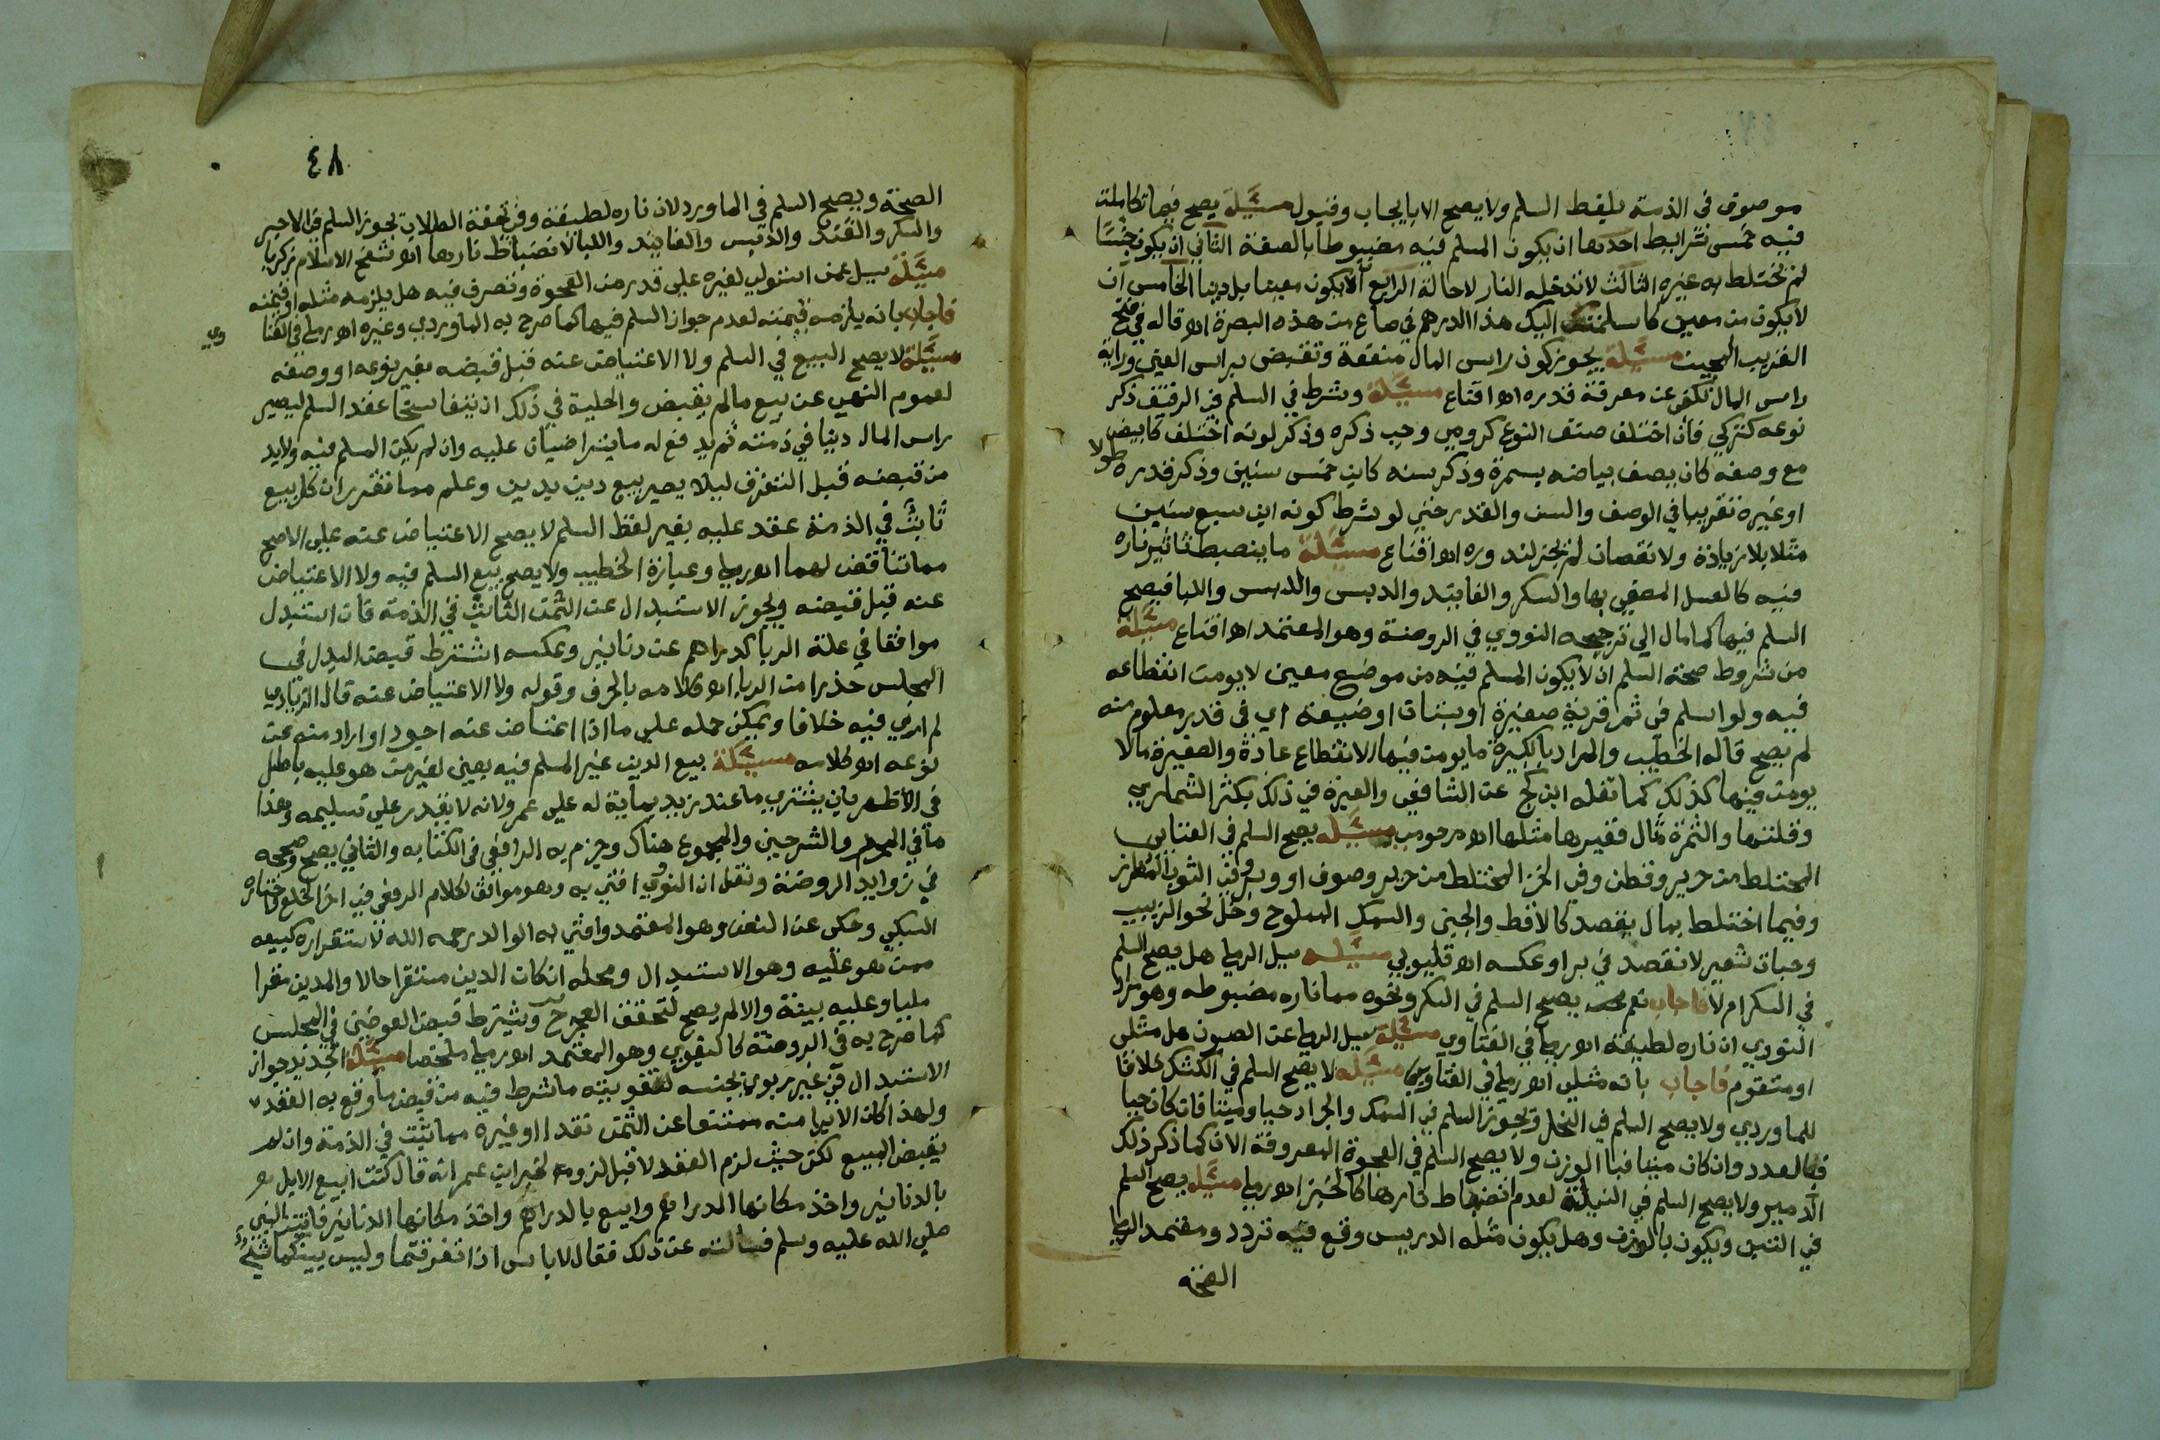 موصوف في الذمة بلفظ السلم ولا يصح الا بايجاب وقبول مسئلة يصح فيما تكاملت
فيه خمس شرايط احدها ان يكون المسلم فيه مضبوطا بالصفة الثاني ان يكون جنسا
لم يختلط به غيره الثالث لا تدخله النار لاحالة الرابع الا يكون معينا بل دينا الخامس ان
لا يكون من معين كاسلمت اليك هذا الدرهم في صاع من هذه الصبرة اه قاله في فتح
القريب المجيب مسئلة يجوز كون راس المال منفعة وتقبض براس العين ورؤية
راس المال تكفي عن معرفة قدره اه اقناع مسئلة وشرط في السلم في الرقيق ذكر
نوعه كتركي فان اختلف صنف النوع كرومي وجب ذكره وذكر لونه اختلف كابيض
مع وصفه كان يصف بياضه بسمرة وذكر سنه كابن خمس سنين وذكر قدره طولا
او غيره تقريبا في الوصف والسن والقدر حتى لو شرط كونه ابن سبع سنين
مثلا بلا زيادة ولا نقصان لم يجز لندوره اه اقناع مسئلة ما ينضبط تاثير ناره
فيه كالعسل المصفى بها والسكر والفانيد والدبس والدبس واللبا فيصح
السلم فيها كما مال الى ترجيحه النووي في الروضة وهو المعتمد اه اقناع مسئلة
من شروط صحة السلم ان لا يكون المسلم فيه من موضع معين لا يومن انقطاعه
فيه ولو اسلم في ثمر قرية صغيرة او بستان او ضيعة اي في قدر معلوم منه
لم يصح قاله الخطيب والمراد بالكبيرة ما يومن فيها الانقطاع عادة والصغيرة مالا
يومن فيها كذلك كما نقله ابن كج عن الشافعي والعبرة في ذلك بكثر الثماري
وقلتها والثمرة مثال فغيرها مثلها اه مرحومي مسئله يصح السلم في العتابي
المختلط من حرير وقطن وفي الخز المختلط من حرير وصوف او وبر وفي الثوب المطرز
وفيما اختلط بما لا يقصد كالاقط والجبن والسمك المملوح وخل نحو الزبيب
وحبات شعير لا تقصد في بر او عكسه اه قليوبي مسئله سيل الرملي هل يصح السلم
في السكر ام لا فاجاب نعم يصح السلم في السكر ونحوه مما ناره مضبوطه وهو مراد
النووي ان ناره لطيفة اه رملي في الفتاوي مسئلة سيل الرملي عن الصوف هل مثلي
او متقوم فاجاب بانه مثلي اه رملي في الفتاوي مسئله لا يصح السلم في الكشك خلافا
للماوردي ولا يصح السلم في النحل ويجوز السلم في السمك والجراد حيا وميتا فان كان حيا
فبالعدد وان كان ميتا فبا الوزن ولا يصح السلم في العجوة المعروفة الان كما ذكر ذلك
الدميري ولا يصح السلم في النيلة لعدم انضباط نارها كالخبز اه رملي مسئله يصح السلم
في التبن ويكون بالوزن وهل يكون مثله الدريس وقع فيه تردد ومعتمد الرملي
الصحة
٤٨
الصحة ويصح السلم في الماورد لان ناره لطيفة وفي تحفة الطلاب يجوز السلم في الاجر
والسكر والقند والدبس والفانيد واللبا لانضباط نارها اه شيخ الاسلام زكريا
مسئلة سيل عمن استولى لغيره على قدر من العجوة وتصرف فيه هل يلزمه مثله او قيمته
فاجاب بانه يلزمه قيمته لعدم جواز السلم فيها كما صرح به الماوردي وغيره اه رملي في الفتاوي
مسئلة لا يصح البيع في السلم ولا الاعتياض عنه قبل قبضه بغير نوعه او وصفه
لعموم النهي عن بيع ما لم يقبض والحلية في ذلك ان يتفاسخا عقد السلم ليصير
راس المال دينا في ذمته ثم يدفع له ما يتراضيان عليه وان لم يكن المسلم فيه ولابد
من قبضه قبل التفرق ليلا يصير بيع دين بدين وعلم مما تقرر ان كل بيع
ثابت في الذمة عقد عليه بغير لفظ السلم لا يصح الاعتياض عنه على الاصح
مما تناقض لهما اه رملي وعبارة الخطيب ولا يصح بيع السلم فيه ولا الاعتياض
عنه قبل قبضه ويجوز الاستبدال عن الثمن الثابت في الذمة فان استبدل
موافقا في علة الربا كدراهم عن دنانير وعكسه اشترط قبض البدل في
المجلس حذرا من الربا اه كلامه بالحرف وقوله ولا الاعتياض عنه قال الزيادي
لم ار في فيه خلافا ويمكن حمله على ما اذا اعتاض عنه اجود او اراد منه عن
نوعه اه كلامه مسئلة بيع الدين غير المسلم فيه بعين لغير من هو عليه باطل
في الاظهر بان يشتري ما عند زيد بماية له على عمر ولانه لا يقدر على تسليمه وهذا
ما في المحرر والشرحين والمجموع هناك وجزم به الرافعي في الكتابه والثاني يصح وصححه
في زوايد الروضة ونقل ان النووي افتى به وهو موافق لكلام الرفعي في اخر الخلع واختاره
السبكي وحكى عن النص وهو المعتمد وافتى به الوالد رحمه الله لاستقراره كبيعه
ممن هو عليه وهو الاستبدال ومحله ان كان الدين مستقرا حالا والمدين مقرا
مليا وعليه بينة والا لم يصح لتحقق العجز ح ويشترط قبض العوضين في المجلس
كما صرح به في الروضة كالبغوي وهو المعتمد اه رملي ملخصا مسئلة الجديد جواز
الاستبدال في غير ربوي بجنسه لتفويته ما شرط فيه من قبض ما وقع به العقد
ولهذا كان الابرا منه ممتنعا عن الثمن نقدا او غيره مما يثبت في الذمة وان لم
يقبض المبيع لكن حيث لزم العقد لا قبل لزومه لخبر ابن عمر انه قال كنت ابيع الابل
بالدنانير واخذ مكانها الدراهم وابيع بالدراهم واخذ مكانها الدنانير فاتيت النبي
صلى الله عليه وسلم فسالته عن ذلك فقال لا باس اذا تفرقتما وليس بينكما شيء